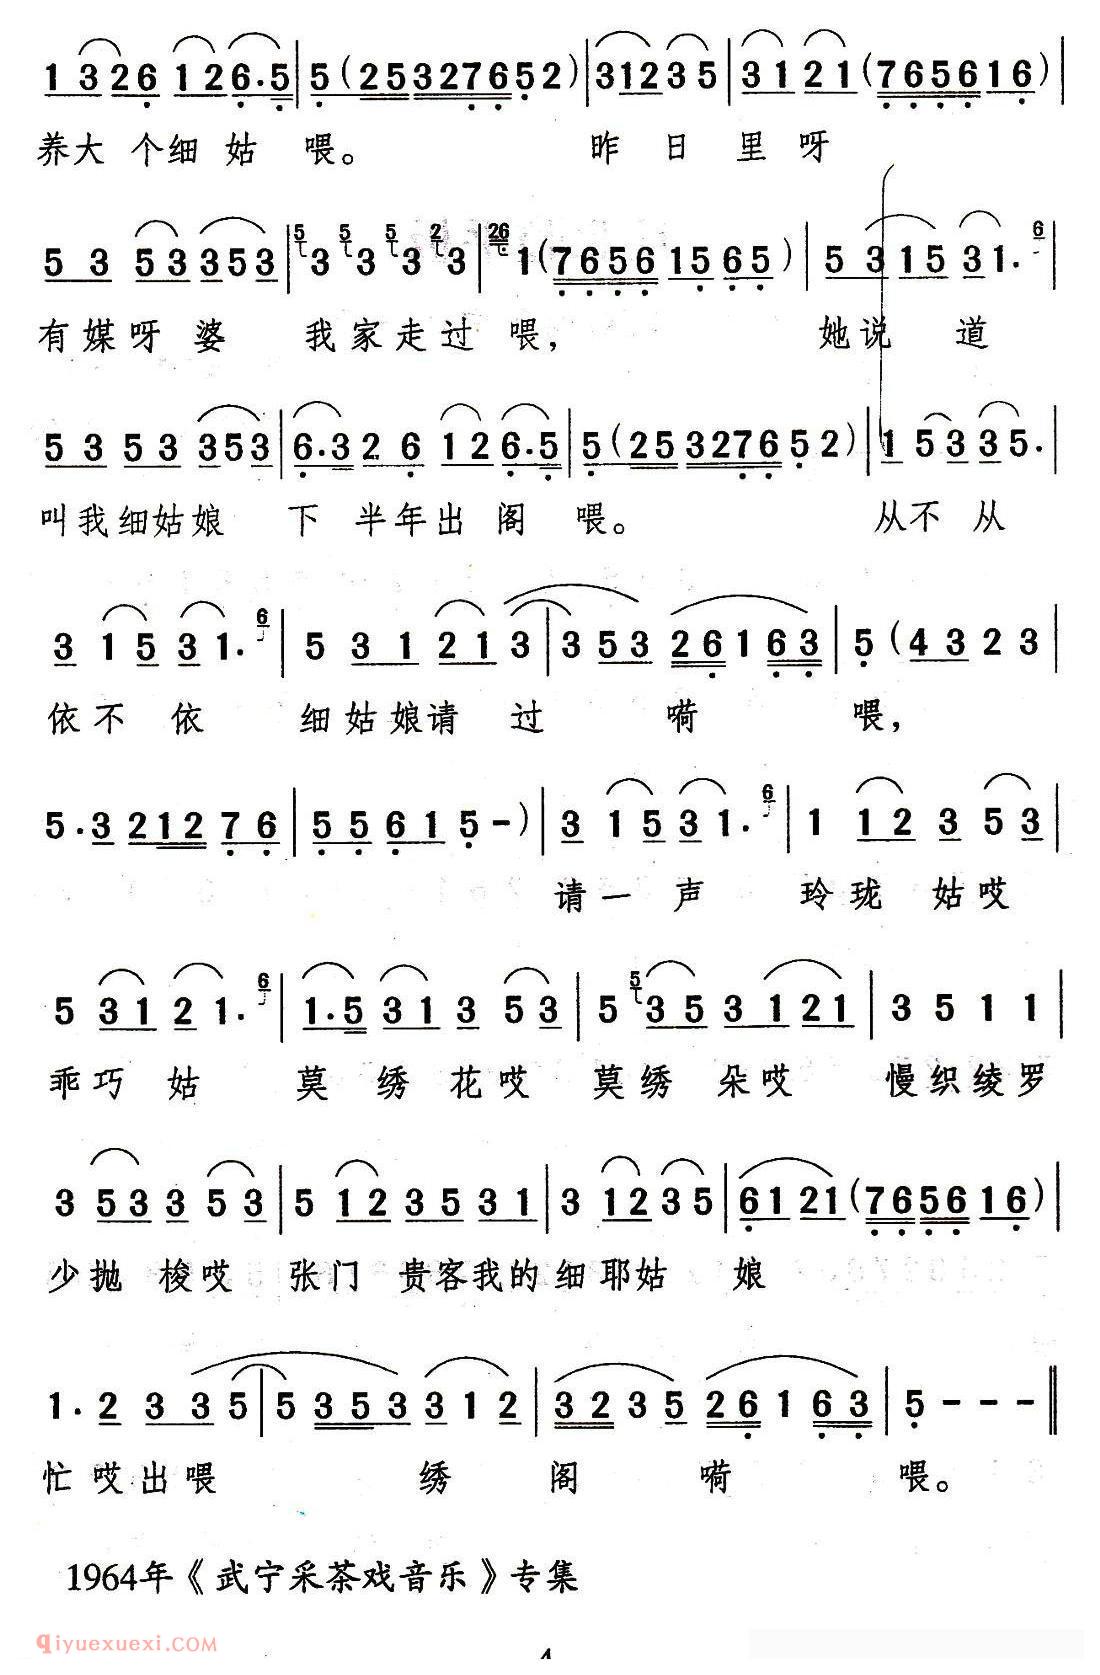 1 3 2 6 1 2 6 . 5 | 5 ( 2 5 3 2 7 6 5 2 ) | 3 1 2 3 5 | 3 1 2 1 ( 7 6 5 6 1 6 ) |
养大 个细 姑 喂。 昨 日 里 呀
5 3 5 3 3 5 3 | 5 3 5 3 5 3 2 3 | 26 1 ( 7 6 5 6 1 5 6 5 ) | 5 3 1 5 3 1 . 6 |
有媒呀 婆 我家走过 喂, 她说 道
5 3 5 3 3 5 3 | 6 . 3 2 6 1 2 6 . 5 | 5 ( 2 5 3 2 7 6 5 2 ) | 1 5 3 3 5 . |
叫我细姑娘 下 半年出 阁 喂。 从不 从
3 1 5 3 1 . 6 | 5 3 1 2 1 3 | 3 5 3 2 6 1 6 3 | 5 ( 4 3 2 3 |
依不 依 细姑娘请 过 嗬 喂,
5 . 3 2 1 2 7 6 | 5 5 6 1 5 - ) | 3 1 5 3 1 . 6 | 1 1 2 3 5 3 |
请一 声 玲珑 姑哎
5 3 1 2 1 . 6 | 1 . 5 3 1 3 5 3 | 5 5 3 5 3 1 2 1 | 3 5 1 1 |
乖巧 姑 莫 绣 花哎 莫绣 朵哎 慢织绫罗
3 5 3 3 5 3 | 5 1 2 3 5 3 1 | 3 1 2 3 5 | 6 1 2 1 ( 7 6 5 6 1 6 ) |
少抛 梭哎 张门 贵客我的细耶姑 娘
1 . 2 3 3 5 | 5 3 5 3 3 1 2 | 3 2 3 5 2 6 1 6 3 | 5 - - - ‖
忙哎出喂 绣 阁 嗬 喂。
1964年《武宁采茶戏音乐》专集
qiyuexuexi.com
4